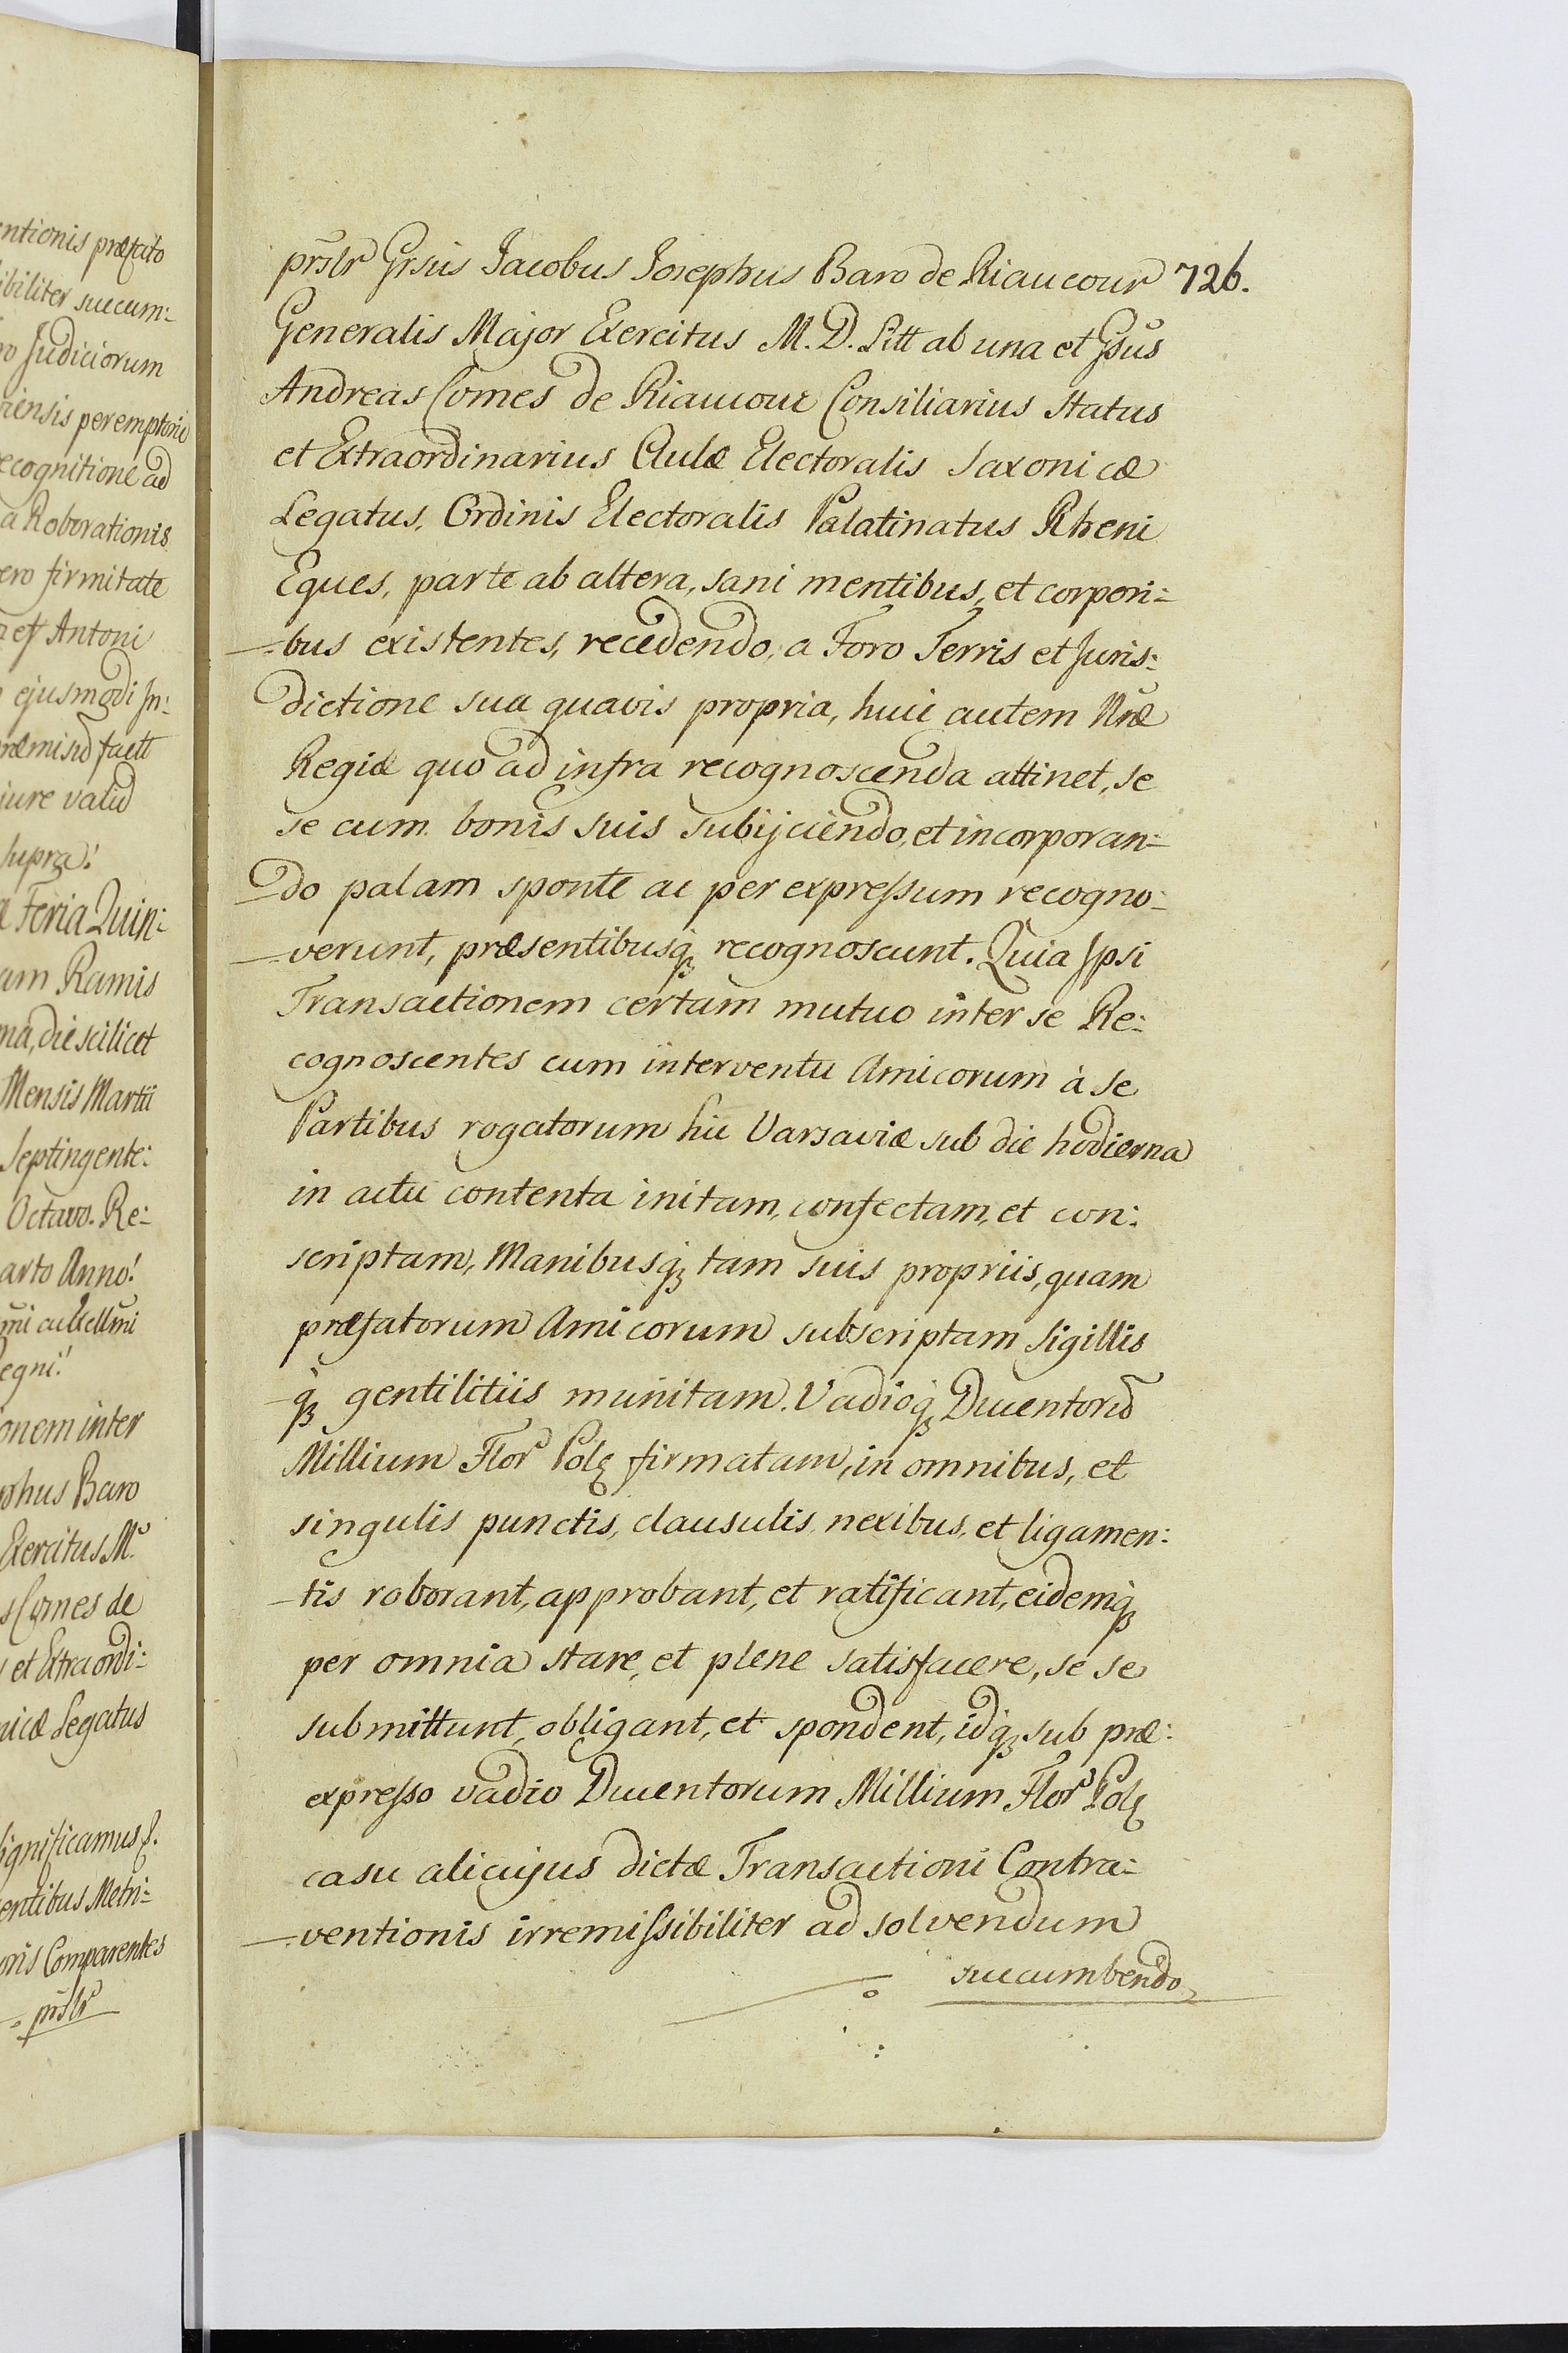 entionis præfato
ibiliter succum:
ro Judiciorum
riensis peremptorie
ecognitione ad
a Roborationis
ero firmitate
Antoni
ejusmodi In:
ræmisõ factt
iure valid
supra!
æ Feria Quin:
am Ramis
ma, die scilicet
Mensis Martii
Septingente:
Octavo. Re:
arto Anno!
egni!
onem inter
phus Baro
Exercitus M.
s Comes de
et Extraordi:
nicæ Legatus
significamus
entibus Metri:
oris Comparentes
prñslr
prñslr Grsus Jacobus Josephus Baro de Riaucour 726.
Generalis Major Exercitus M. D. Litt ab una et Gsus
Andreas Comes de Riaucour Consiliarius Status
et Extraordinarius Aulæ Electoralis Saxonicæ
Legatus, Ordinis Electoralis Palatinatus Rheni
Eques, parte ab altera, sani mentibus, et corpori:
=bus existentes, recedendo, a Foro Terris et Juris:
dictione sua quavis propria, huic autem Nræ
Regiæ quo ad infra recognoscenda attinet, se
se cum bonis suis subijciendo, et incorporan=
=do palam sponte ac per expressum recogno:
=verunt, præsentibusq; recognoscunt. Quia Ipsi
Transactionem certam mutuo inter se Re:
cognoscentes cum interventu Amicorum à se
Partibus rogatorum hic Varsaviæ sub die hodierna
in actu contenta initam, confectam, et con:
scriptam, Manibusq; tam suis propriis, quam
præfatorum Amicorum subscriptam Sigillis
q; gentilitiis munitam. Vadioq; Ducentorũ
Millium Flor Pol firmatam, in omnibus, et
singulis punctis, clausulis, nexibus, et ligamen:
=tis roborant, approbant, et ratificant, eidemq;
per omnia stare, et plene satisfacere, se se
submittunt, obligant, et spondent, idq; sub præ:
expresso vadio Ducentorum Millium Flor Pol
casu alicujus dictæ Transactioni Contra=
=ventionis irremissibiliter ad solvendum
succumbendo